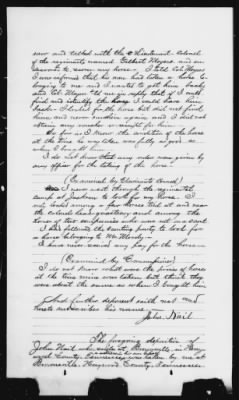 now and talked with the Lieutenant Colonel
of the regiment named Gilbert Moyers and an
to recover my horse. I told Col Moyers
I was informed that his men had taken a horse be-
longing to me and I wanted to get him back
and Col Moyers told me in reply that if I could
find and identify the horse I could have him
back. I looked for the horse but did not find
him and never saw him again and I did not
obtain any voucher or receipt for him.
So far as I know the condition of the horse
at the time he was taken was fully as good as
when I bought him.
I do not know that any order was given by
any officer for the taking of the horse.
(Examined by Claimants Counsel)
I never went through the regimental
camp at Jackson to look for my horse. I
only looked among a few horses tied at and near
the Colonels headquarters and among the
horses of two companies who were out on a scout
I had followed the scouting party to look for
a horse belonging to
I have never received any pay for the horse.
(Examined by Commissioner)
I do not know what was the price of horses
at the time mine was taken but think they
were about the same as when I bought him
And further deponent saith not and
hereto subscribes his name.
John Nail
The foregoing deposition of
John Nail who resides at Brownsville in Hay-
wood County Tennessee was taken by me at
Brownsville Haywood County Tennessee